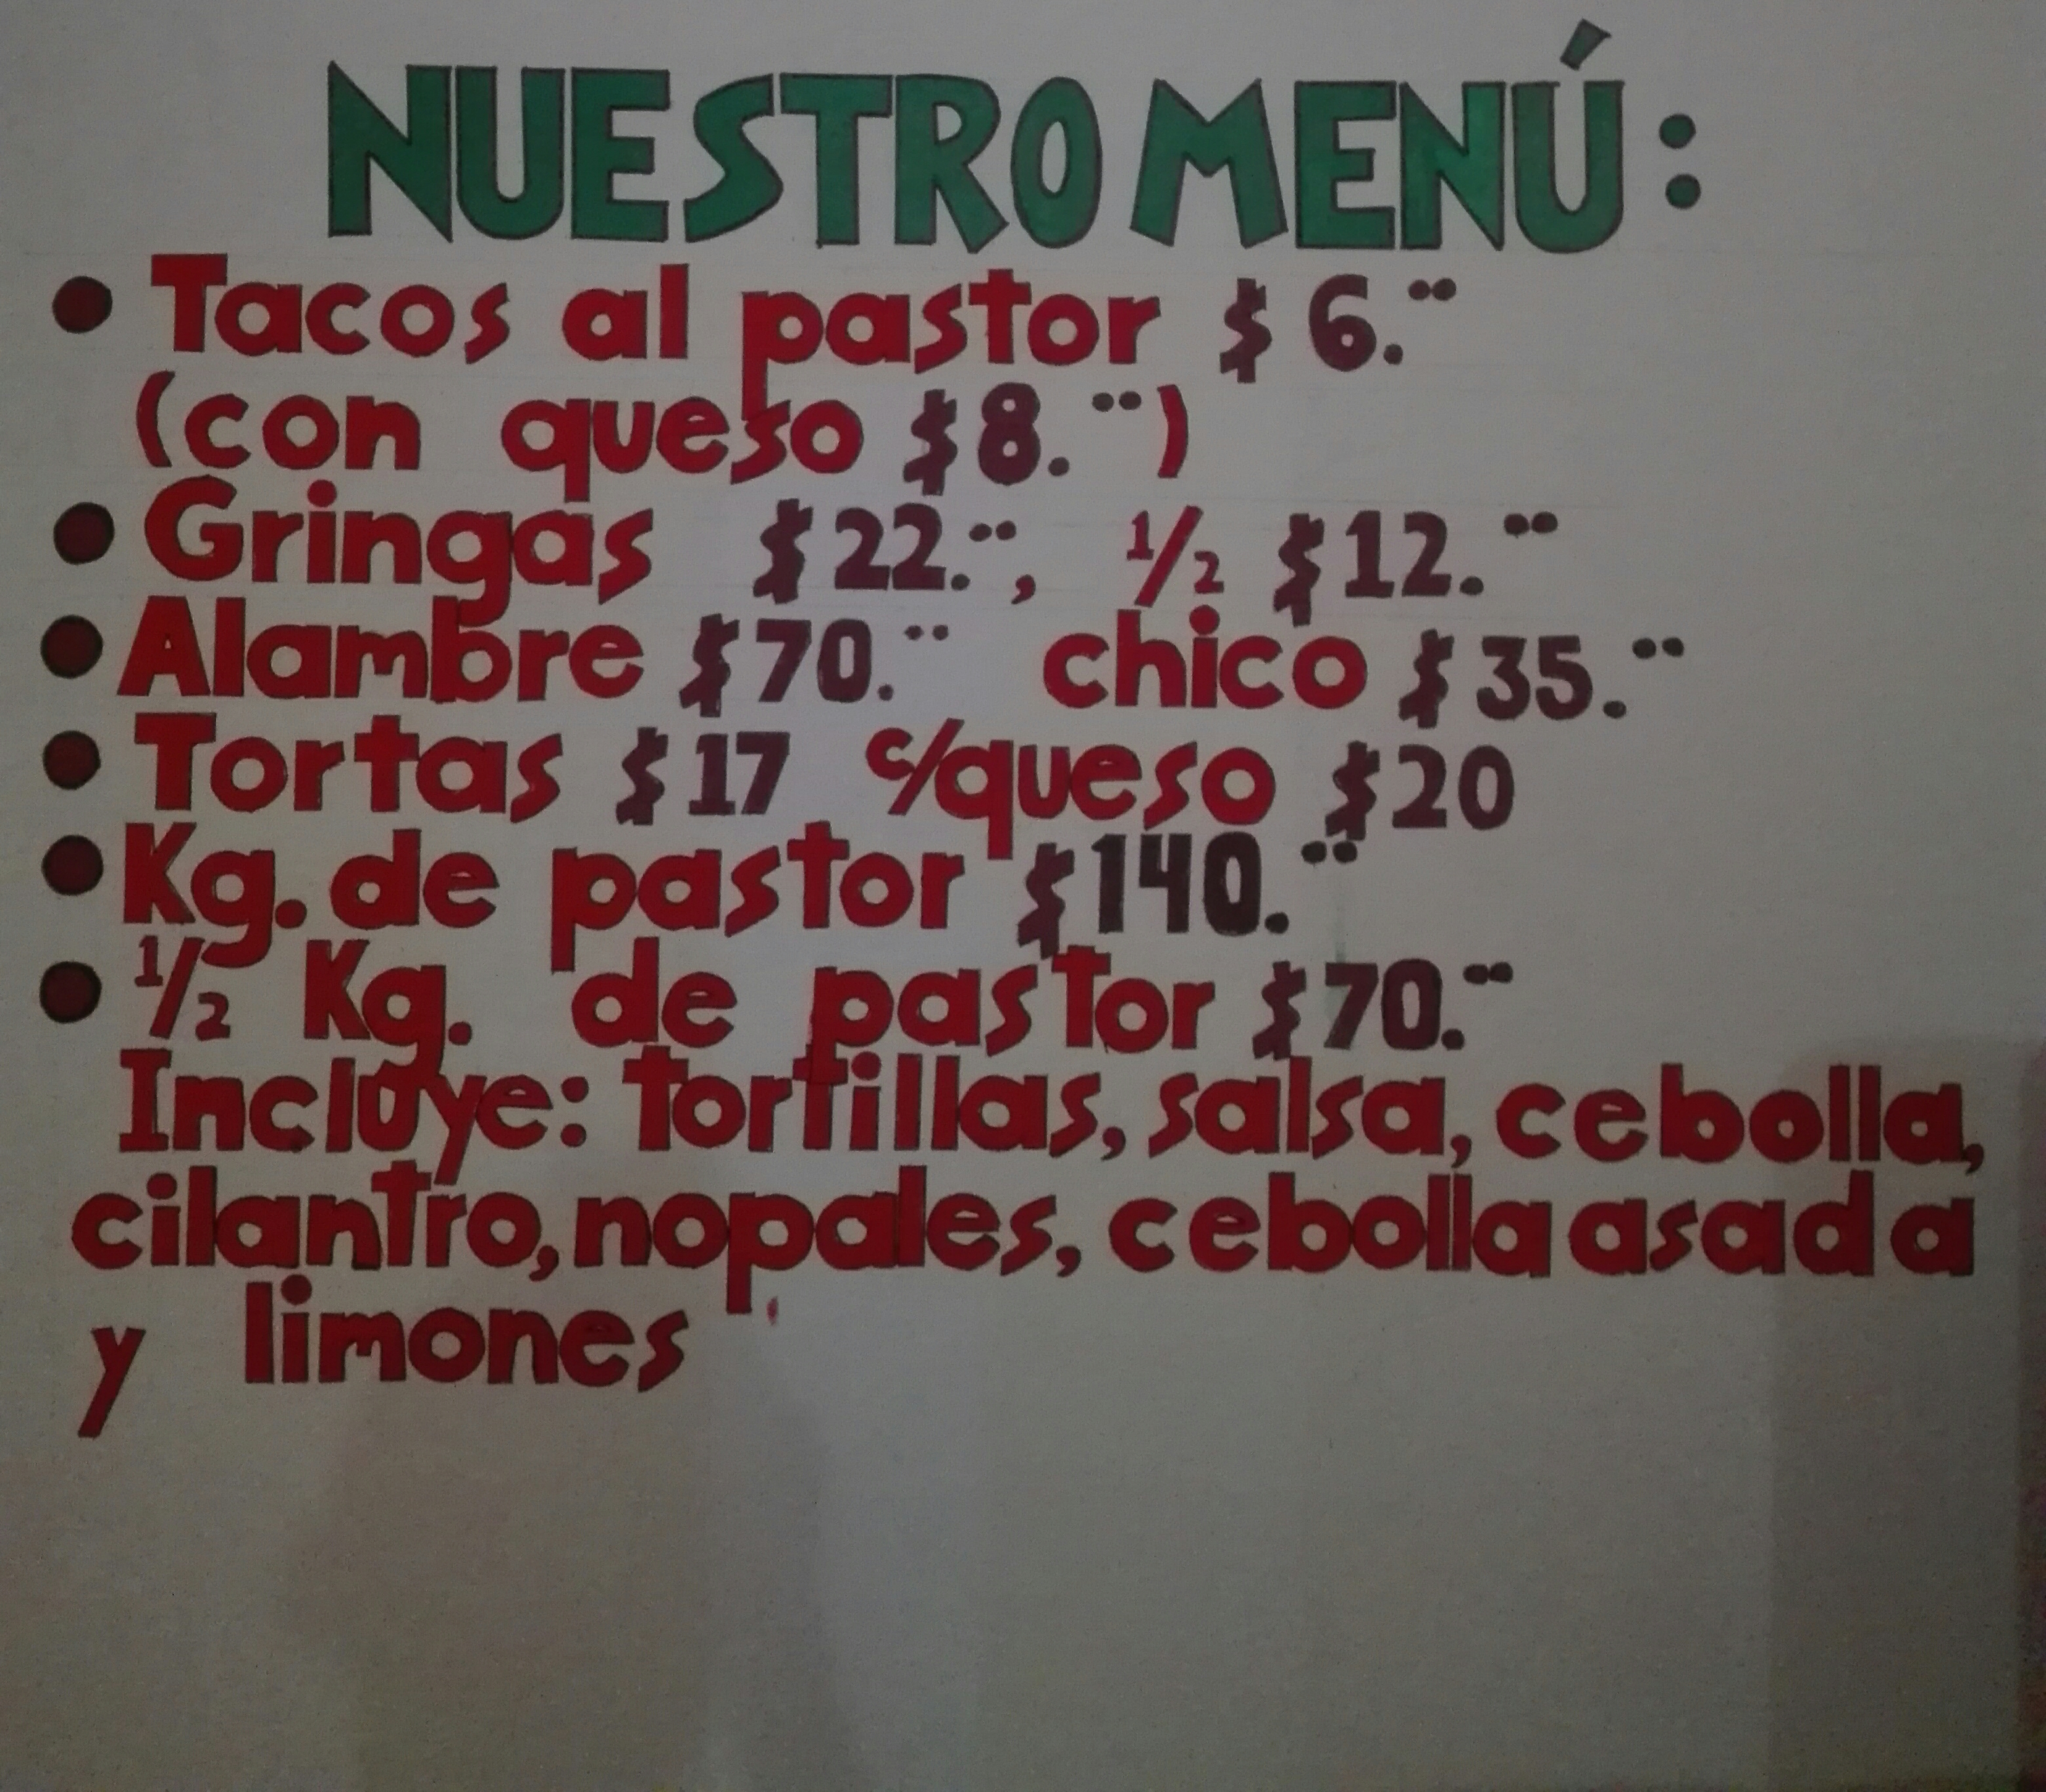 NUESTRO MENÚ:
• Tacos al pastor $6.¨
(con queso $8.¨)
• Gringas $22.¨, 1/2 $12.¨
• Alambre $70.¨ chico $35.¨
• Tortas $17 c/queso $20
• Kg. de pastor $140.¨
• 1/2 Kg. de pastor $70.¨
Incluye: tortillas, salsa, cebolla,
cilantro, nopales, cebolla asada
y limones